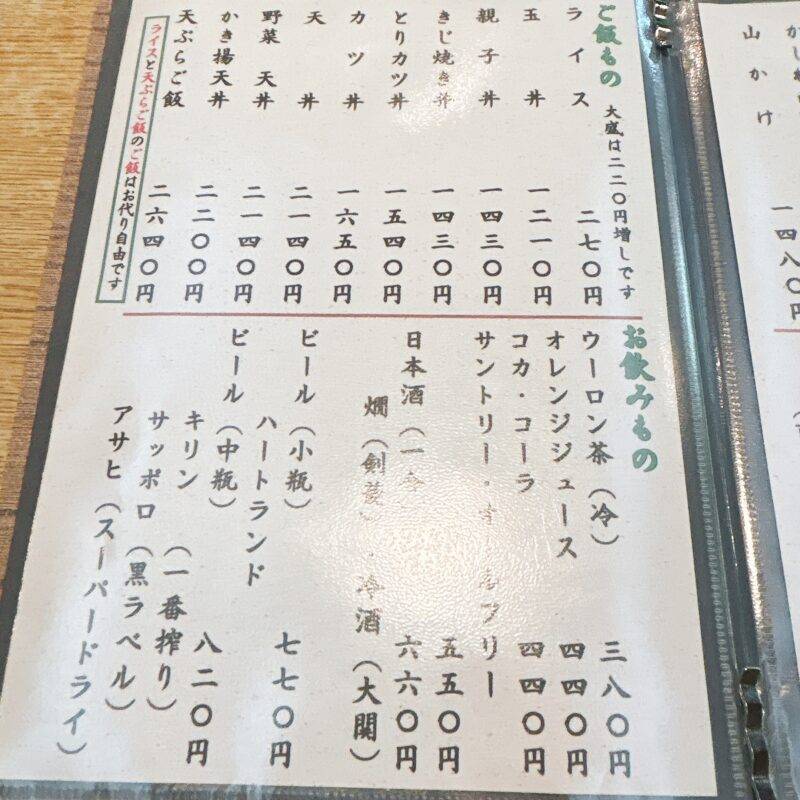 ご飯もの 大盛は二二〇円増しです
ライス 二七〇円
玉丼 一二一〇円
親子丼 一四三〇円
きじ焼き丼 一四三〇円
とりカツ丼 一五四〇円
カツ丼 一六五〇円
天丼 二一四〇円
野菜天丼 二一四〇円
かき揚天丼 二二〇〇円
天ぷらご飯 二六四〇円
ライスと天ぷらご飯のご飯はお代り自由です
お飲みもの
ウーロン茶(冷) 三八〇円
オレンジジュース 四四〇円
コカ・コーラ 四四〇円
サントリー・オールフリー 五五〇円
日本酒(一合) 六六〇円
燗(剣菱)・冷酒(大関)
ビール(小瓶) 七七〇円
ハートランド
ビール(中瓶) 八二〇円
キリン(一番搾り)
サッポロ(黒ラベル)
アサヒ(スーパードライ)
山かけ 一四八〇円